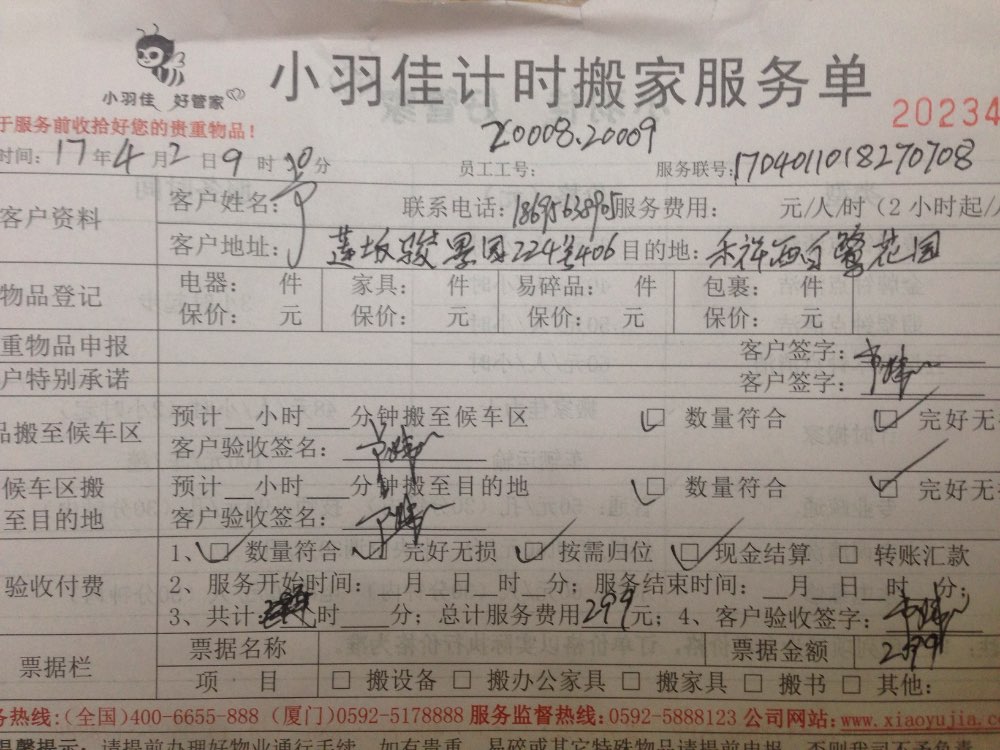 小羽佳 好管家
小羽佳计时搬家服务单
于服务前收拾好您的贵重物品！
20234
20008.20009
时间：17年4月2日9时30分 员工工号： 服务联号：1704011018270708
客户资料 客户姓名： 联系电话：18695638905 服务费用： 元/人/时（2小时起/
客户地址：莲坂骏景园224号406 目的地：禾祥西白鹭花园
物品登记 电器： 件 家具： 件 易碎品： 件 包裹： 件
保价： 元 保价： 元 保价： 元 保价： 元
重物品申报 客户签字：
户特别承诺 客户签字：
品搬至候车区 预计__小时___分钟搬至候车区 □ 数量符合 □ 完好无
客户验收签名：
候车区搬至目的地 预计__小时___分钟搬至目的地 □ 数量符合 □ 完好无
客户验收签名：
验收付费 1、□ 数量符合 □ 完好无损 □ 按需归位 □ 现金结算 □ 转账汇款
2、服务开始时间：__月__日__时__分；服务结束时间：__月__日__时__分；
3、共计 时____分；总计服务费用299元；4、客户验收签字：
票据栏 票据名称 票据金额 299
项 目 □ 搬设备 □ 搬办公家具 □ 搬家具 □ 搬书 □ 其他：
务热线:(全国)400-6655-888 (厦门)0592-5178888 服务监督热线:0592-5888123 公司网站:www.xiaoyujia.c
温馨提示：请提前办理好物业通行手续，如有贵重、易碎或其它特殊物品请提前申报，否则